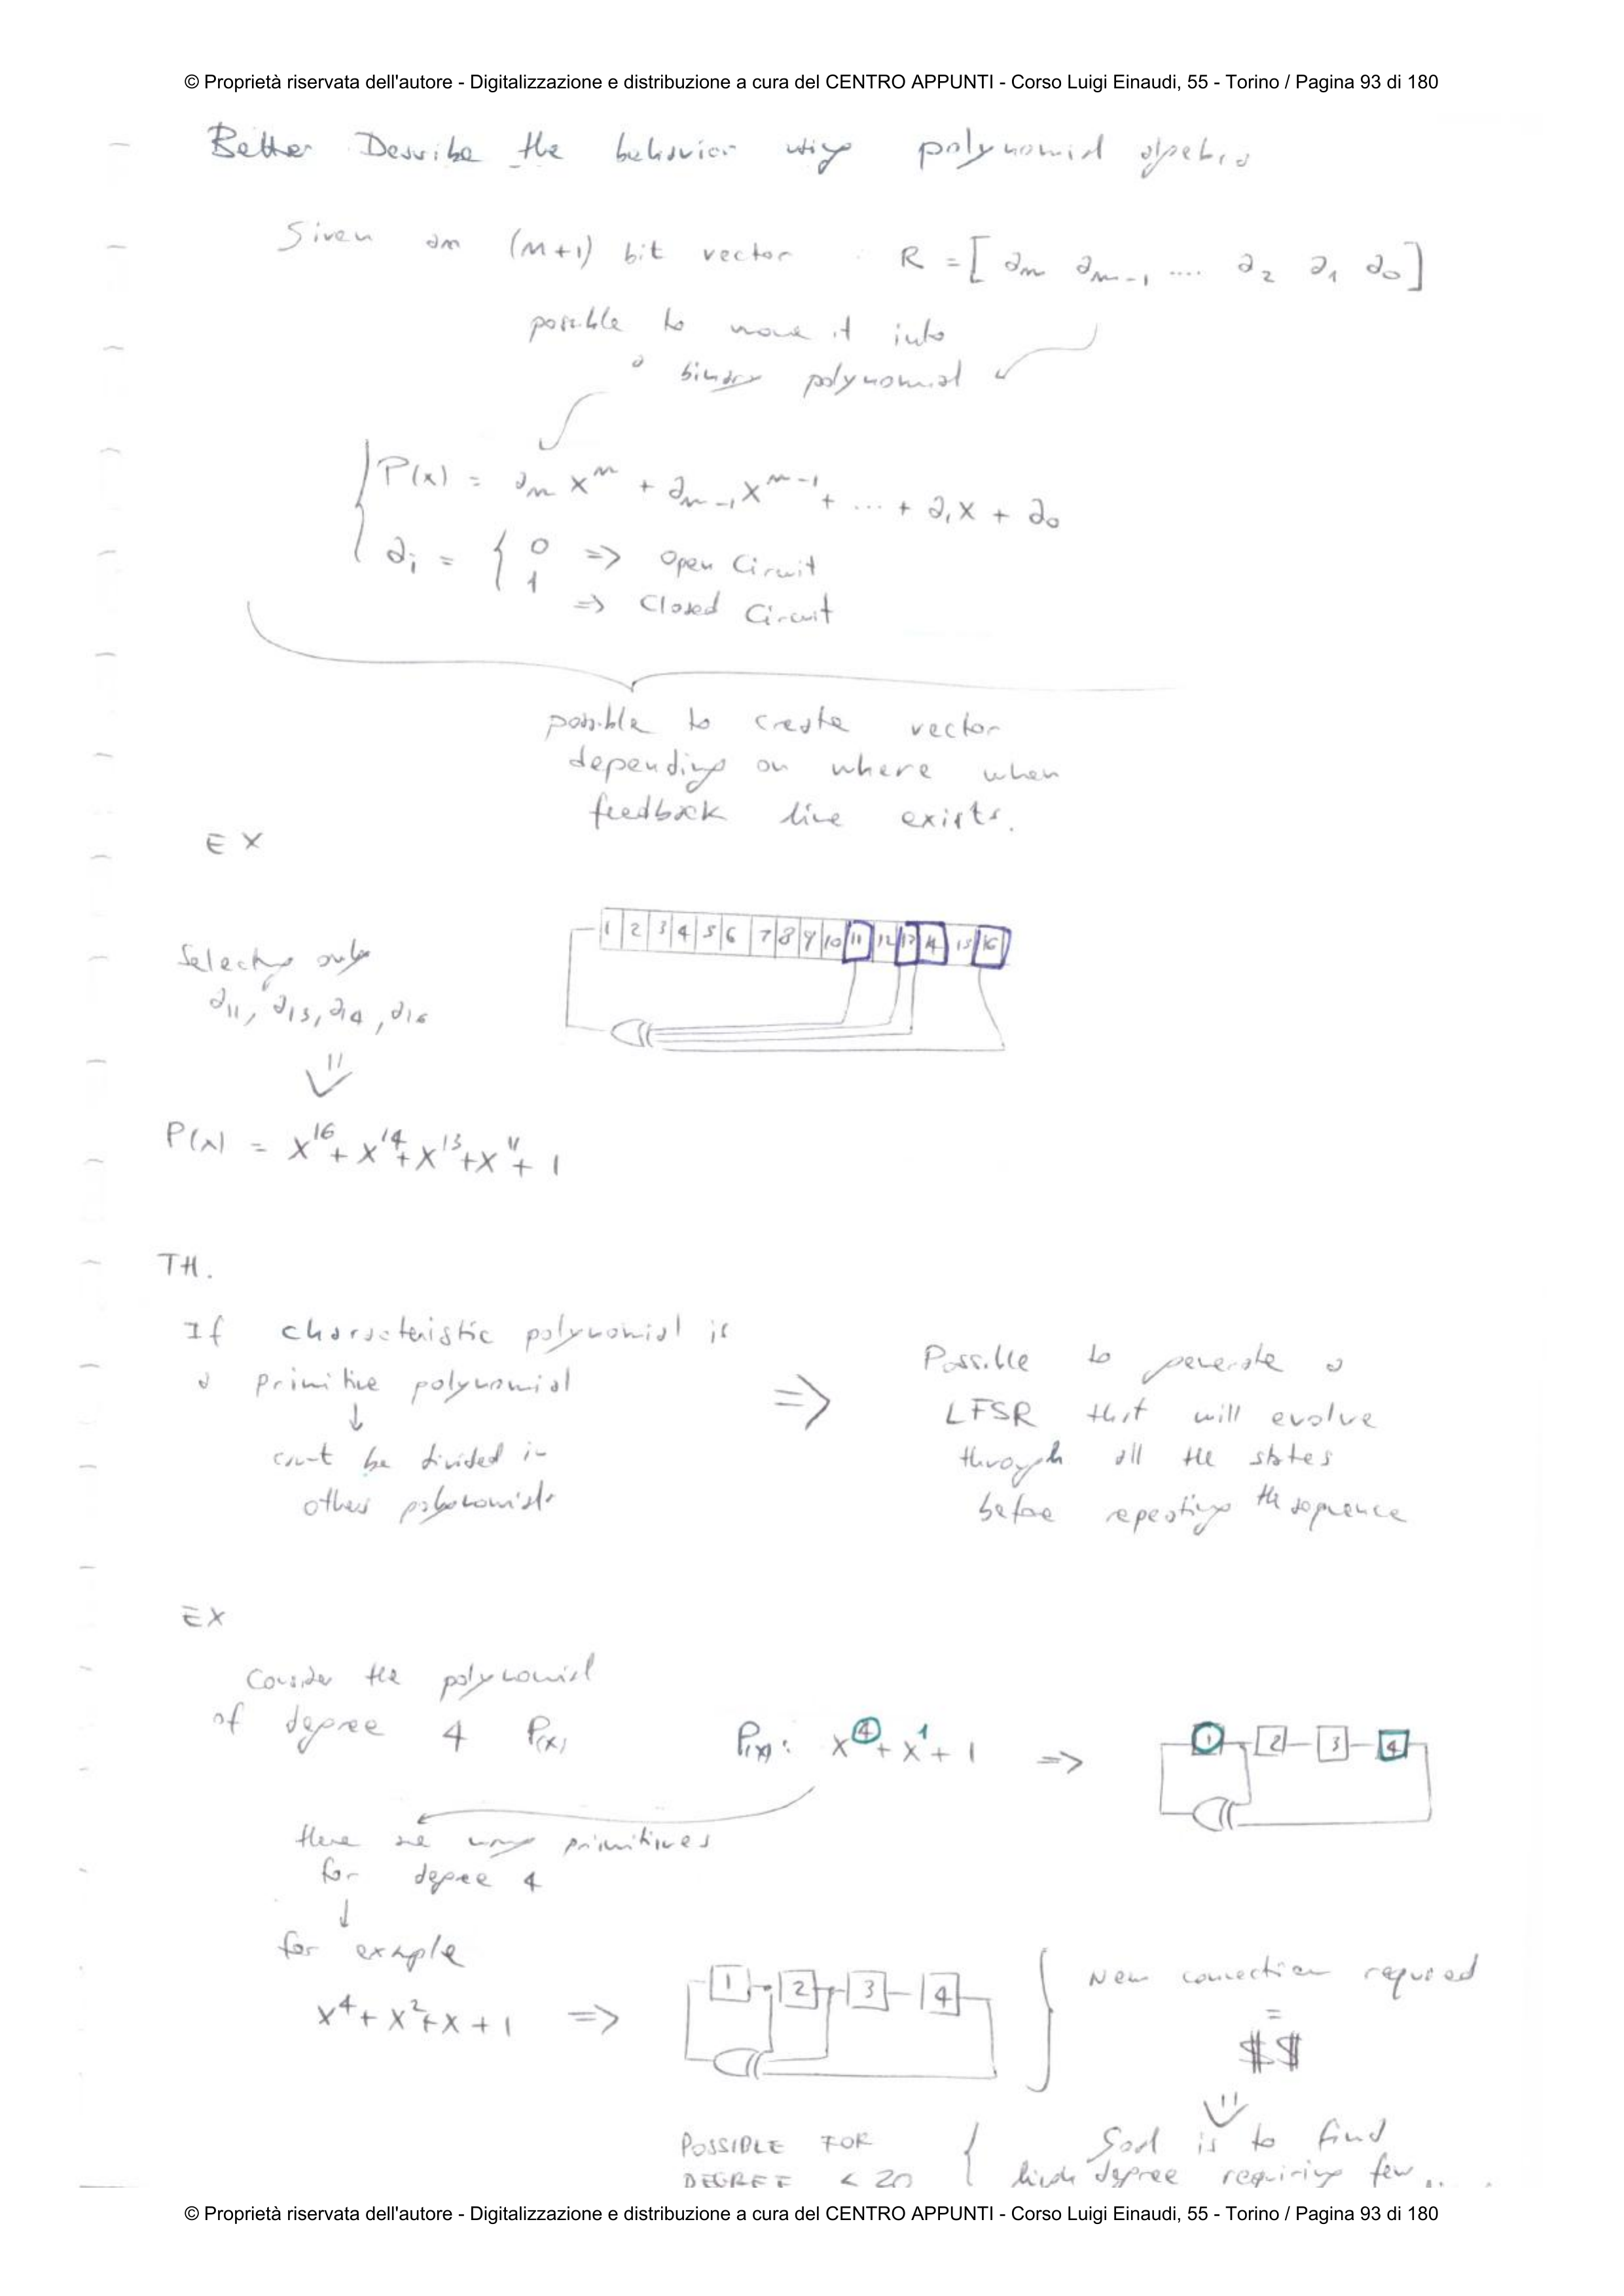 © Proprietà riservata dell'autore - Digitalizzazione e distribuzione a cura del CENTRO APPUNTI - Corso Luigi Einaudi, 55 - Torino / Pagina 93 di 180
Better Describe the behavior using polynomial algebra
Given an (m+1) bit vector : R = [ a_m a_m-1 .... a_2 a_1 a_0 ]
possible to move it into
a binary polynomial
P(x) = a_m x^m + a_m-1 x^m-1 + ... + a_1 x + a_0
a_i = { 0 => Open Circuit
1 => Closed Circuit
possible to create vector
depending on where when
feedback line exists.
EX
1 2 3 4 5 6 7 8 9 10 11 12 13 14 15 16
Selecting only
a_11, a_13, a_14, a_16
P(x) = x^16 + x^14 + x^13 + x^11 + 1
TH.
If characteristic polynomial is
a primitive polynomial
↓
can't be divided in
other polynomials
=>
Possible to generate a
LFSR that will evolve
through all the states
before repeating the sequence
EX
Consider the polynomial
of degree 4 P(x)
P(x): x^4 + x^1 + 1 =>
1 2 3 4
there are many primitives
for degree 4
↓
for example
x^4 + x^2 + x + 1 =>
1 2 3 4
New connection required
=
$$
POSSIBLE FOR
DEGREE < 20
Goal is to find
high degree requiring few ..
© Proprietà riservata dell'autore - Digitalizzazione e distribuzione a cura del CENTRO APPUNTI - Corso Luigi Einaudi, 55 - Torino / Pagina 93 di 180